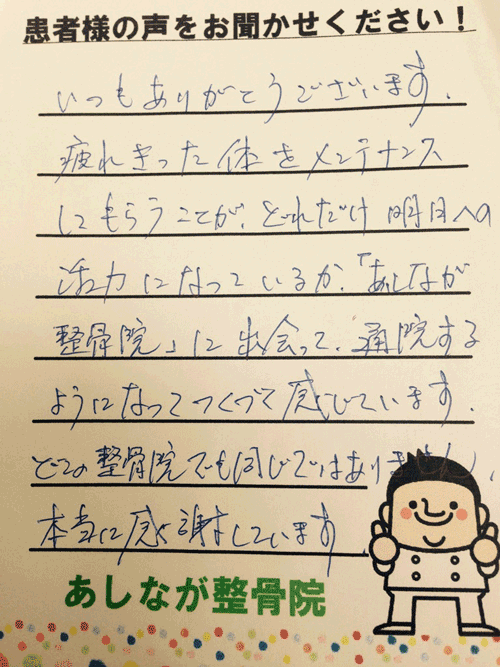 患者様の声をお聞かせください！
いつもありがとうございます。
疲れきった体をメンテナンス
してもらうことが、どれだけ明日への
活力になっているか、「あしなが
整骨院」に出会って、通院する
ようになってつくづく感じています。
どこの整骨院でも同じではありません、
本当に感謝しています
あしなが整骨院